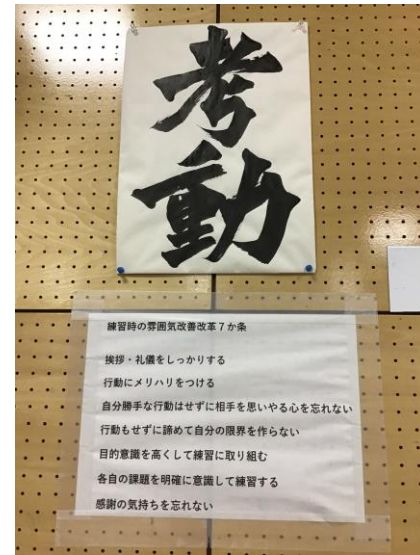 考動
練習時の雰囲気改善改革7か条
挨拶・礼儀をしっかりする
行動にメリハリをつける
自分勝手な行動はせずに相手を思いやる心を忘れない
行動もせずに諦めて自分の限界を作らない
目的意識を高くして練習に取り組む
各自の課題を明確に意識して練習する
感謝の気持ちを忘れない